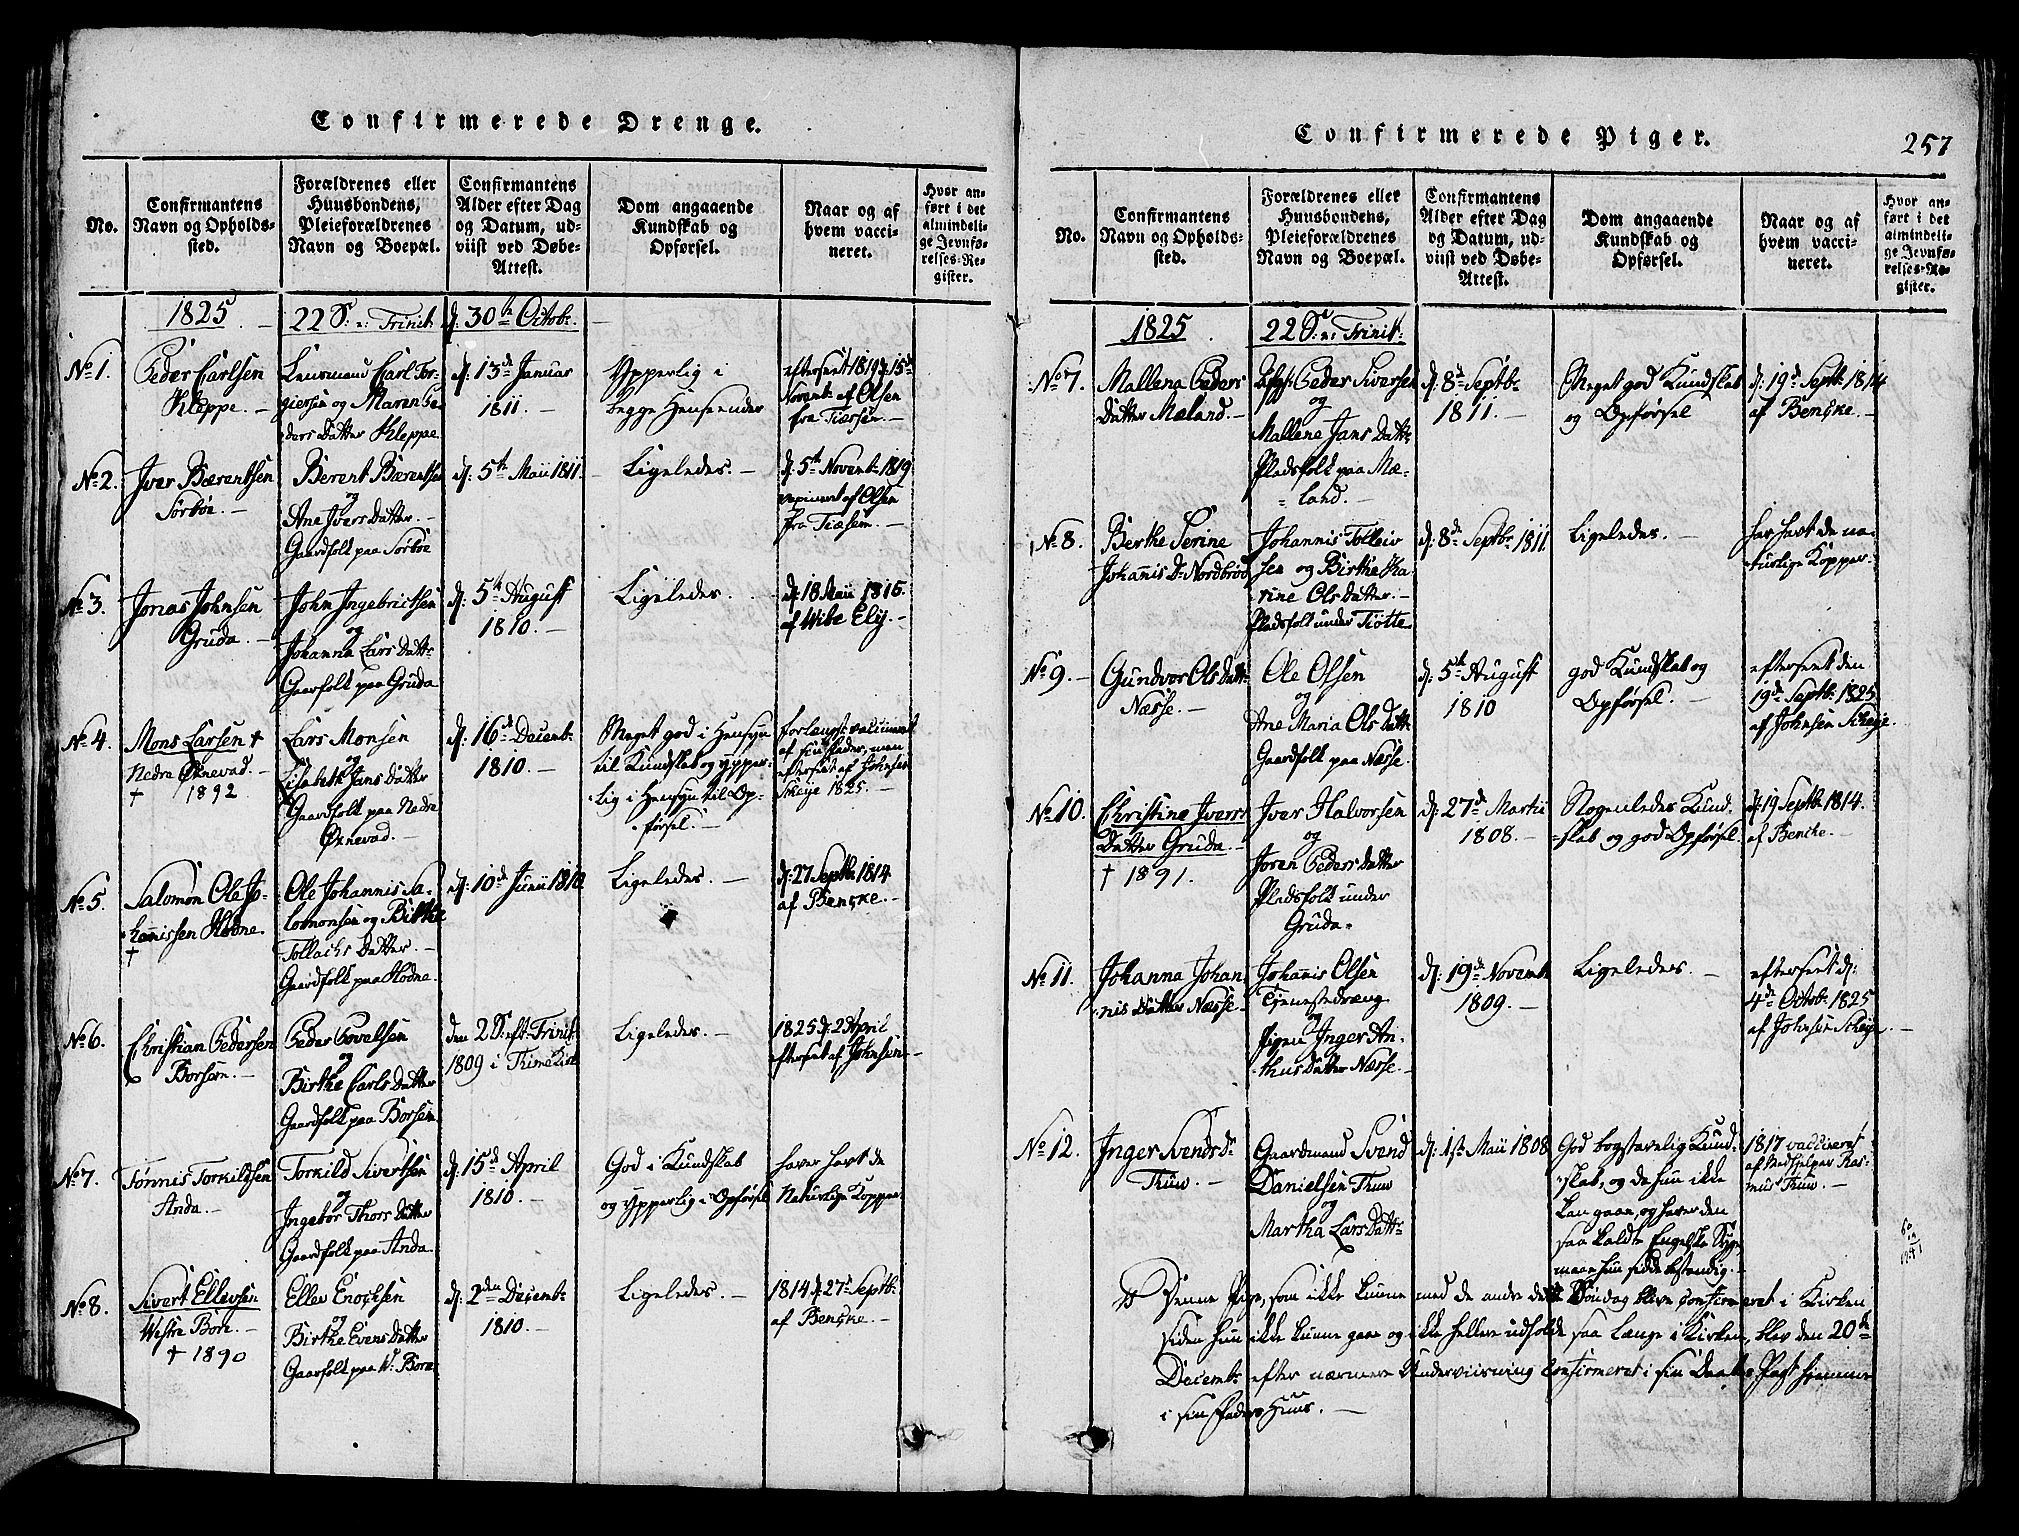 Confirmerede Drenge.
No.
Confirmantens
Navn og Opholds-
sted.
Forældrenes eller
Huusbondens,
Pleieforældrenes
Navn og Boepæl.
Confirmantens
Alder efter Dag
og Datum, ud-
viist ved Døbe-
Attest.
Dom angaaende
Kundskab og
Opførsel.
Naar og af
hvem vacci-
neret.
Hvor an-
ført i det
almindeli-
ge Jevnfø-
relses-Re-
gister.
1825
22 S: n: Trinit:
d: 30th Octob:
No 1.
Peder Carlsen
Kleppe. –
Lensmand Carl Tor-
giersen og Maren Pe-
ders Datter Kleppe
d: 13de Januar
1811. –
Ypperlig i
begge Henseender
efterseet 1819 d: 15de
Novent: af Olsen
fra Tiæsem. –
No 2.
Iver Bærentsen
Sørbøe. –
Berent Bærentsen
og
Ane Ivers Datter. –
Gaardfolk paa Sørbøe
d: 5th Maii 1811.
Ligeledes. –
d: 5th Novemb: 1819
af Olsen
fra Tiæsem. –
No 3.
Jonas Johnsen
Gruda. –
John Ingebrictsen
og
Johanna Lars Datt:
Gaarfolk paa Gruda
d: 5th August
1810. –
Ligeledes. –
d: 18 Maii 1815.
af Wibe Elij. –
No 4.
Mons Larsen †
Nedre Øxnevad. –
† 1892
Lars Monsen
og
Lisabeth Jans Datter
Gaardfolk paa Nedre
Øxnevad. –
d: 16de Decemb:
1810. –
Meget god i Hensyn
til Kundskab og ypper-
lig i Hensyn til Op-
førsel. –
forlængst vaccineret
af sin Fader, men
efterseet af Johnsen
Skeije 1825. –
No 5.
Salomon Ole Jo-
hannissen Hodne.
†
Ole Johannis Sa-
lomonsen og Birthe
Tollachs Datter. –
Gaardfolk paa Hodne.
d: 10de Junii 1810.
Ligeledes. –
d: 27 Septb: 1814
af Bencke. –
No 6.
Christian Pedersen
Borsem. –
Peder Povelsen
og
Birthe Carls Datter
Gaardfolk paa Borsem
den 2 S: eft: Trinit:
1809 i Time Kirke
Ligeledes. –
1825 d: 2 April
efterseet af Johnsen –
No 7.
Tønnis Torkildsen
Anda. –
Torkild Sivertsen
og
Ingebor Thors Datter
Gaardfolk paa Anda.
d: 15de April
1810. –
God i Kundskab
og Ypperlig i Opførsel
haver havt de
Naturlige Kopper.
No 8.
Sivert Ellevsen
Westre Bore. –
† 1890
Ellev Enocksen
og
Birthe Evens Datter
Gaarfolk paa W: Bore
d: 2den Decemb:
1810. –
Ligeledes. –
1814 d: 27de Septb:
af Bencke. –
Confirmerede Piger.
257
No.
Confirmantens
Navn og Opholds-
sted.
Forældrenes eller
Huusbondens,
Pleieforældrenes
Navn og Boepæl.
Confirmantens
Alder efter Dag
og Datum, ud-
viist ved Døbe-
Attest.
Dom angaaende
Kundskab og
Opførsel.
Naar og af
hvem vacci-
neret.
Hvor an-
ført i det
almindeli-
ge Jevnfø-
relses-Re-
gister.
1825.
22 S: n: Trinit:
No 7.
Mallena Peders
Datter Mæland. –
Peder Siversen
og
Mallene Jans Datt:
Pladsfolk paa Mæ-
land. –
d: 8de Septb:
1811. –
Meget god Kundskab
og Opførsel
d: 19de Septb: 1814
af Bencke. –
No 8.
Berthe Serine
Johannis D: Nordbrod
Johannis Tolleiv
sen og Birthe Ka
rine Ols Datter. –
Pladsfolk under Tiøtte.
d: 8de Septb: 1811.
Ligeledes. –
har havt de na-
turlige Kopper.
No 9. –
Gundvor Ols Datt:
Næsse. –
Ole Olsen
og
Ane Maria Ols Datt:
Gaardfolk paa Næsse.
d: 5th August
1810
god Kundskab og
Opførsel. –
efterseet den
19de Septb: 1825
af Johnsen Skeije.
No 10.
Christine Ivers
Datter Gruda. –
† 1891.
Iver Halvorsen
og
Joren Peders Datter
Pladsfolk under
Gruda.
d: 27de Martii
1808. –
Nogenledes Kund-
skab og god Opførsel.
d: 19 Septb: 1814.
af Bencke. –
No 11.
Johanna Johan
nis Datter Næsse. –
Johanis Olsen
Tjenestedræng
og
Pigen Inger An-
thus Datter Næsse. –
d: 19de Novemb:
1809. –
Ligeledes. –
efterseet d:
4de Octob: 1825
af Johnsen Skeije. –
No 12.
Inger Svends D:
Tiuw. –
Gaardmand Svend
Danielsen Tiuw
og
Martha Lars Datt:
d: 1ste Maii 1808
God bogstavelig Kund-
skab, og da hun ikke
kan gaae, og haver den
saa kaldte Engelske Syge
maae hun sidde bestandig. –
1817 vaccineret
af Medhjelper Ras-
mus Tiuw. –
Denne Pige, som ikke kunne med de andre dette Søndag blive confirmeret i Kirken
siden hun ikke kunne gaae og ikke heller udholde saa længe i Kirken, blev den 20th
Decemb: efter nærmere Underviisning Confirmeret i sin Daabs Pagt hiemme
i sin Faders Huus. –